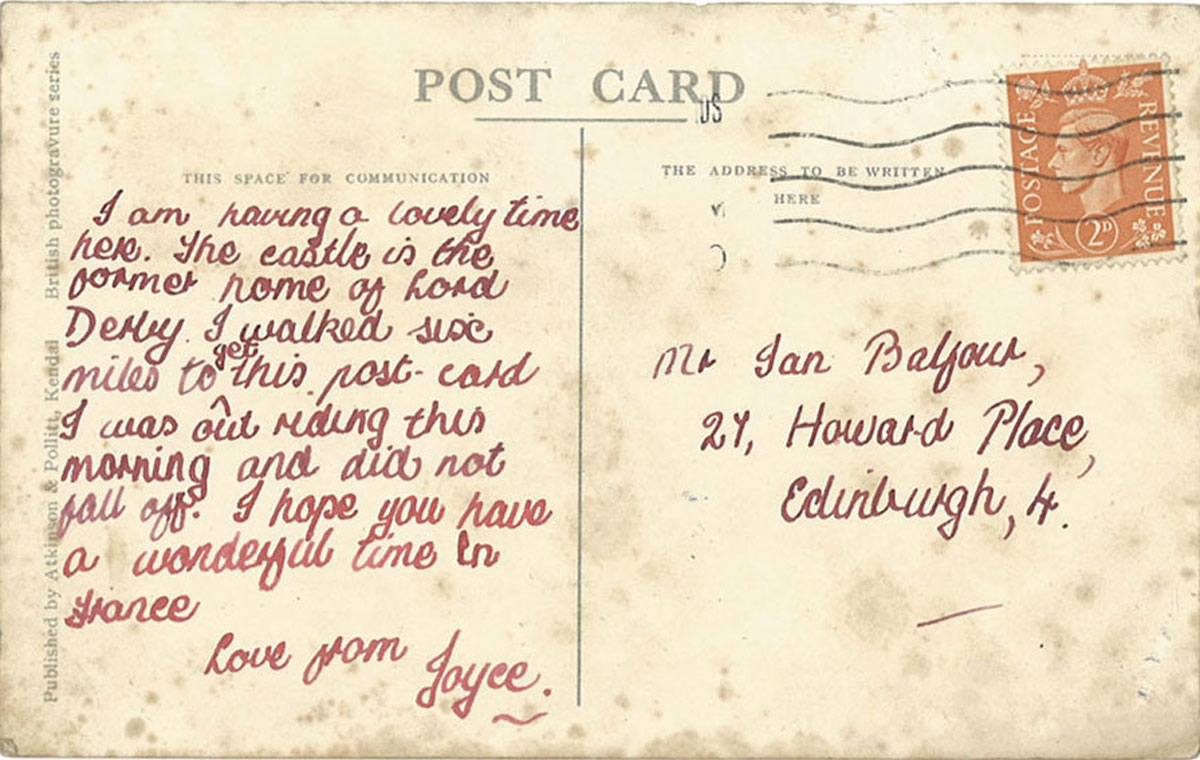 POST CARD
THIS SPACE FOR COMMUNICATION
I am having a lovely time
here. The castle is the
former home of Lord
Derby. I walked six
miles to get this post-card
I was out riding this
morning and did not
fall off. I hope you have
a wonderful time in
France
Love from
Joyce.
THE ADDRESS TO BE WRITTEN
HERE
Mr Ian Balfour,
27, Howard Place,
Edinburgh, 4.
POSTAGE
REVENUE
2D
Published by Atkinson & Pollitt, Kendal British photogravure series